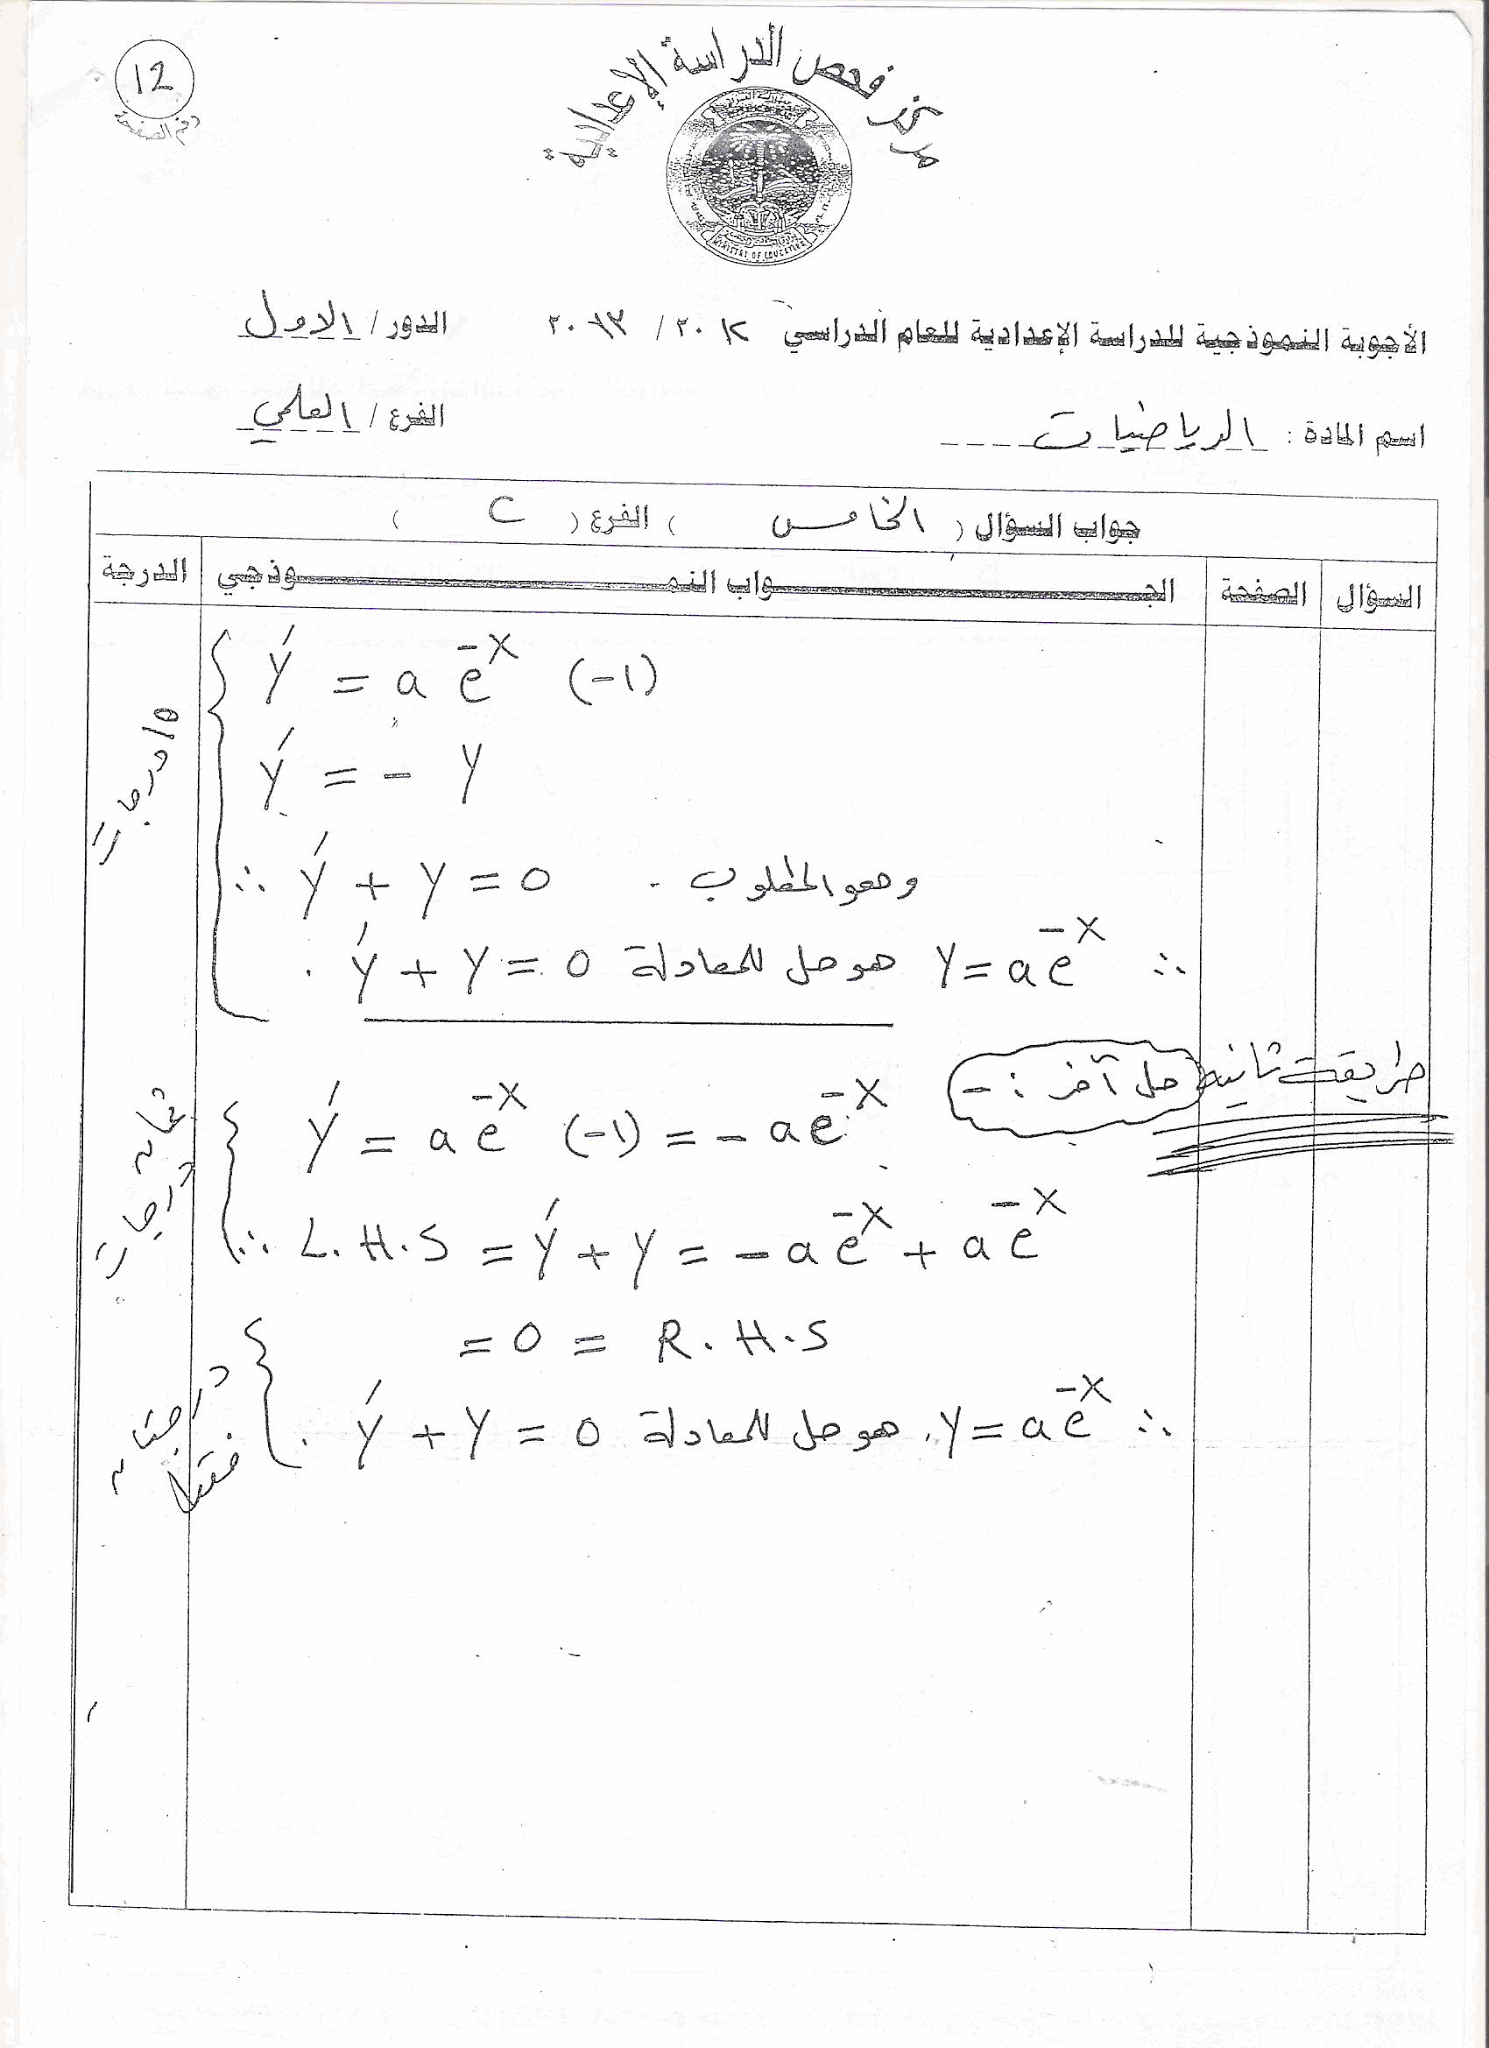 12
رقم الصفحة
مركز فحص الدراسة الإعدادية
MINISTRY OF EDUCATION
الأجوبة النموذجية للدراسة الإعدادية للعام الدراسي ٢٠١٢ / ٢٠١٣ الدور / الاول
اسم المادة : الرياضيات الفرع / العلمي
جواب السؤال ( الخامس ) الفرع ( C )
السؤال الصفحة الجـــواب النمـــوذجي الدرجة
ý = a e^{-x} (-1)
ý = - y
∴ ý + y = 0 وهو المطلوب .
∴ y = a e^{-x} هو حل للمعادلة ý + y = 0 .
درجات
طريقة ثانية حل آخر : -
ý = a e^{-x} (-1) = - a e^{-x}
∴ L.H.S = ý + y = - a e^{-x} + a e^{-x}
ثمانه درجات
= 0 = R.H.S
∴ y = a e^{-x} هو حل للمعادلة ý + y = 0 .
درجتانه فقط